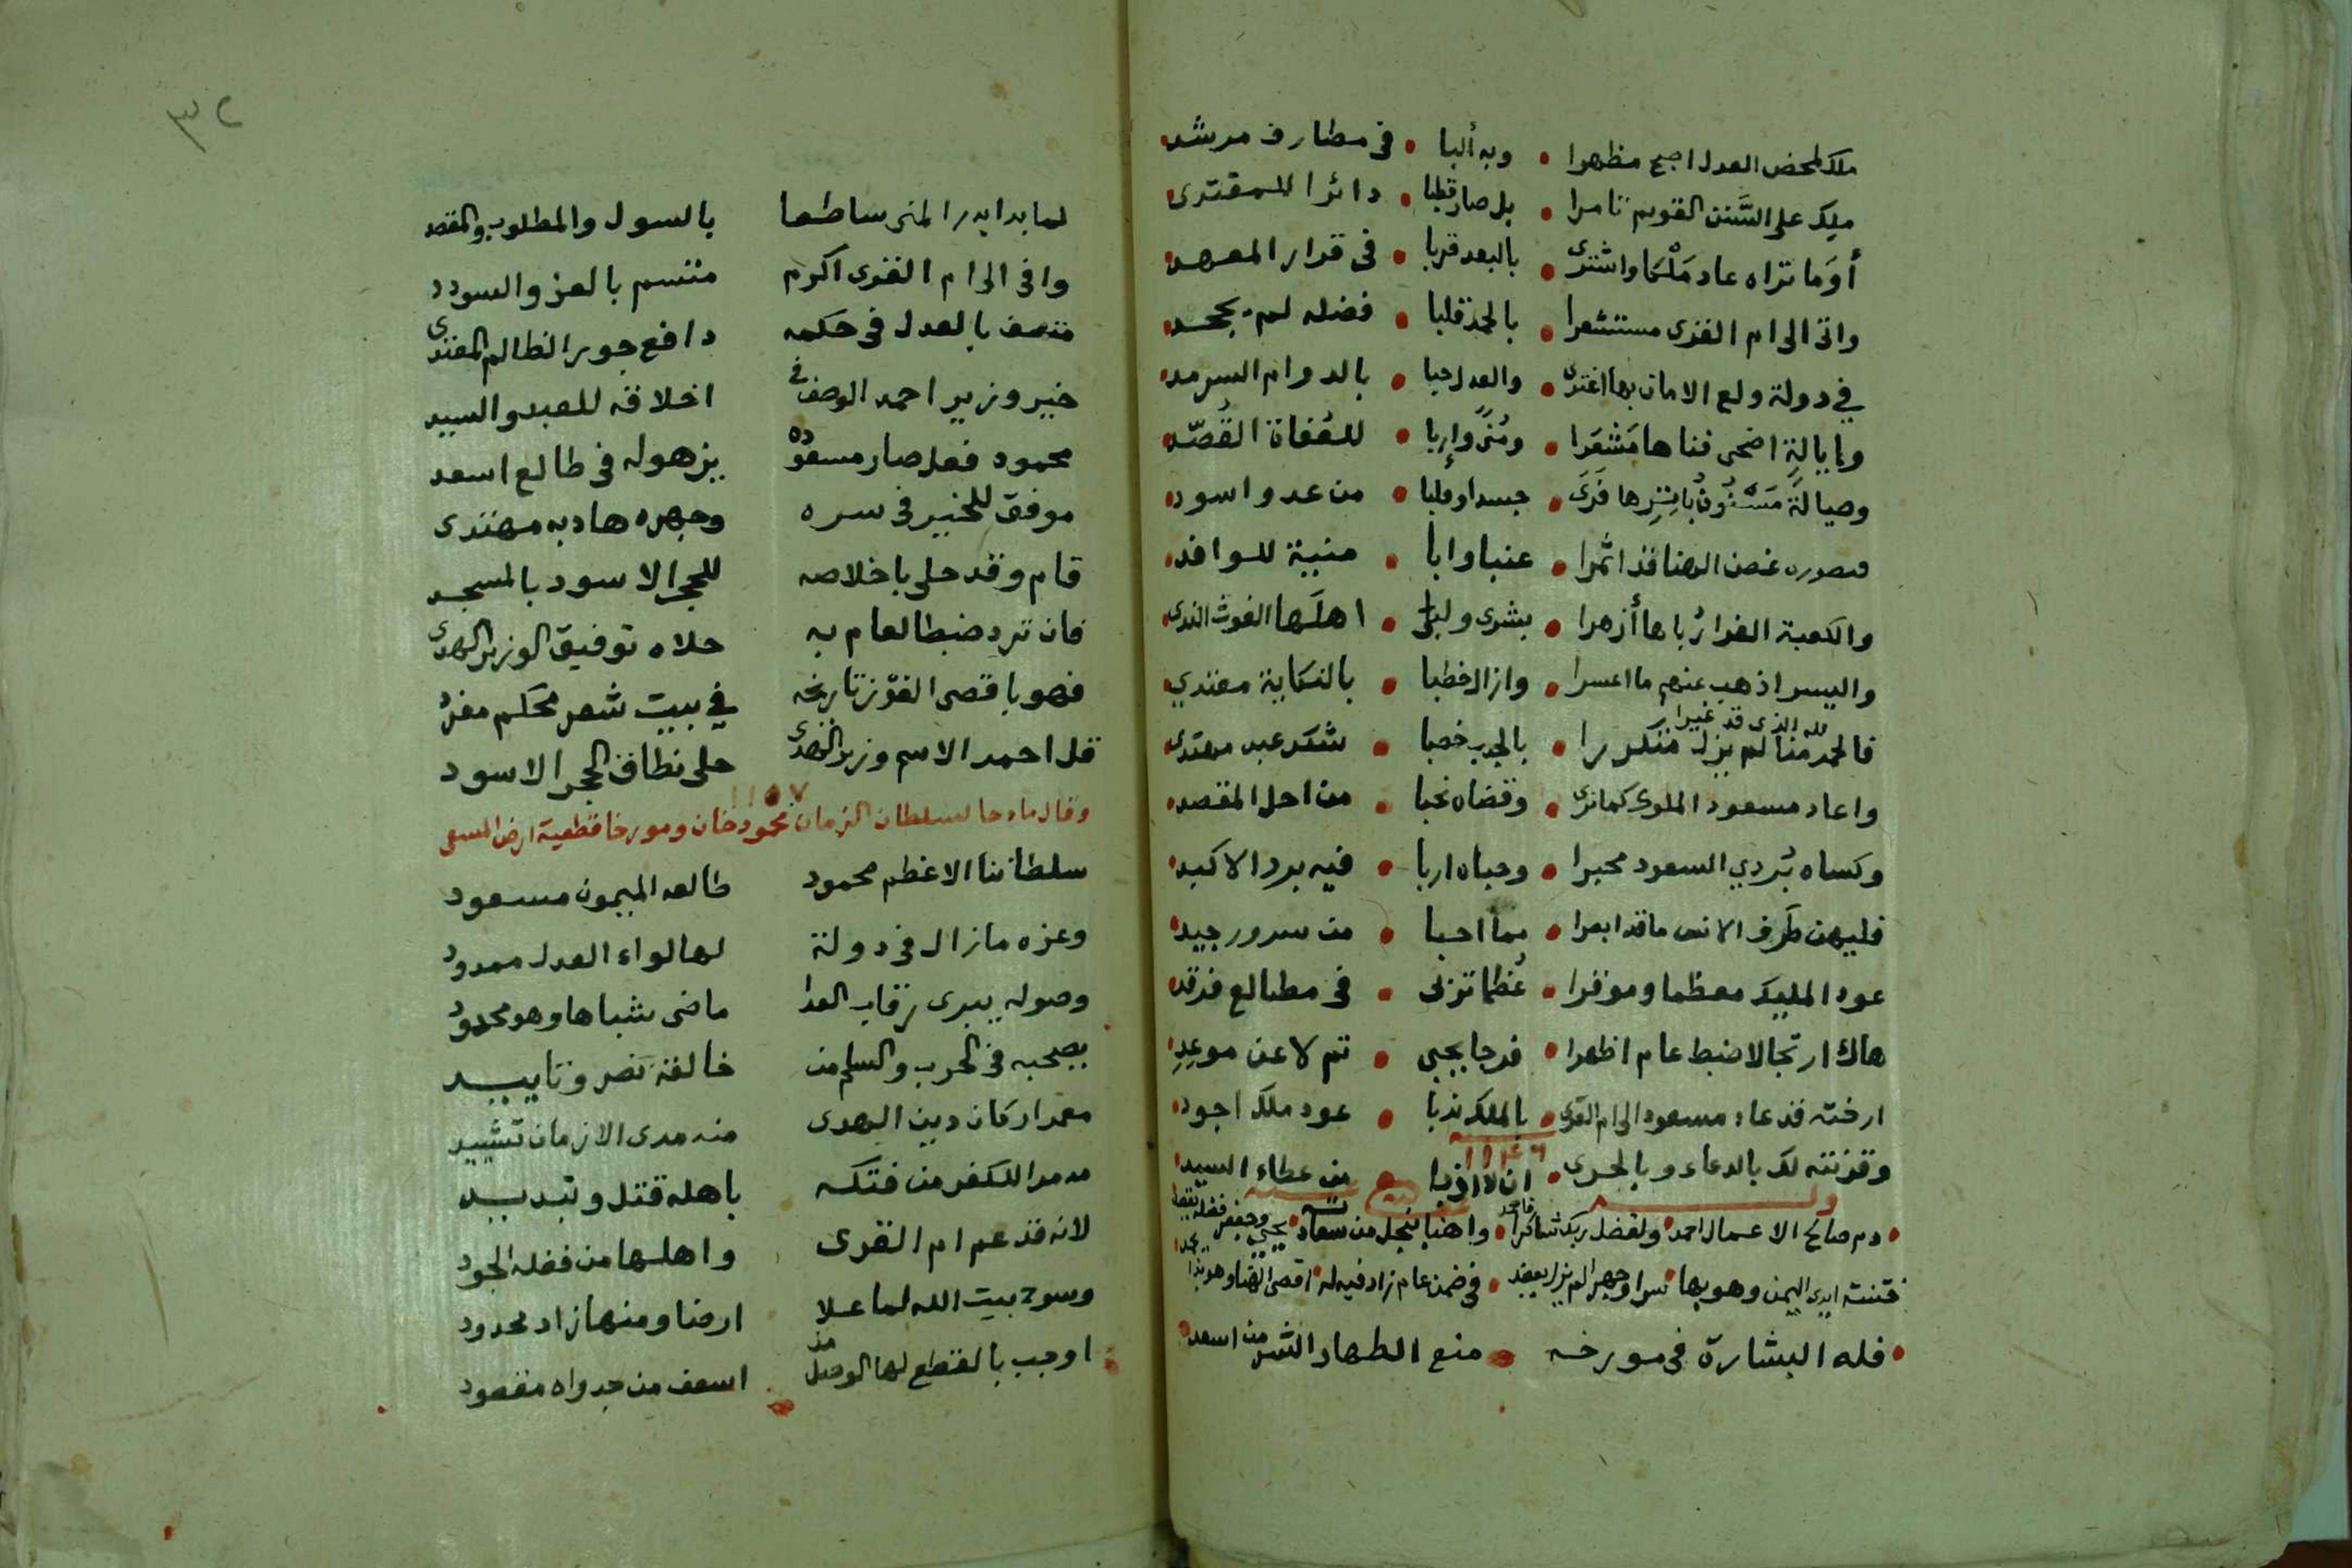 ملك لمحض العدل اصبح مظهرا • وبه ألبا • في مطارف مرشد
ملك على السَّنن القويم تامرا • بل صار قطبا • دائرا للمقتدى
أوَما تراه عاد مَلْكا واشترى • بالبعد قربا • في قرار المعهد
واتى الى ام القرى مستشعرا • بالحمد قلبا • فضله لم يجحد
في دولة ولع الامان بها اغتدى • والعدل حبا • بالدوام السرمد
وايالةٍ اضحى فناها مَشْعَرا • ومُنىً وإربا • للعُفاة القُصّد
وصيالة • جسدا وقلبا • من عدو اسود
قصوره غصن الهنا قد اثمرا • عنبا وابا • منبية للوافد
والكعبة الغرا رُباها أزهرا • بشرى ولبى • اهلَها الغوث الندى
واليسر اذهب عنهم ما اعسرا • وازال خطبا • بالنكاية معتدي
لله الذى قد غيرا
فالحمد منا لم يزل متكررا • بالجدب خصبا • شكر عبد مهتدى
واعاد مسعود الملوك كما نرى • وقضاه نحبا • من اجل المقصد
وكساه بُردي السعود محبرا • وحباه اربا • فيه برد الاكبد
فليهن طَرف الانس ما قد ابصرا • مما احبا • من سرور جيد
عود المليك معظما وموقرا • عُظما تزلى • في مطالع فرقد
هاك ارتجالا ضبط عام اظهرا • فرجا يجبى • تم لا عن موعدِ
ارخته قد عاد مسعود الى ام القرى • بالملك ندبا • عود ملك اجود
١١٤٦
وقرنته لك بالدعاء وبالحرى • ان لا اذبا • من عطاء السيد
وله
• دم صالح الاعمال احمد • ولفضل ربك شاكرا • واهنا بنجل من سعاد • يحيي وجعفر فضله
قتنته ايدى اليمن وهو بها • سرا وجهرا لم يزل • في ضمن عام زاد فيه له • اقصى الهنا وهو
• فله البشارة في مورخه • منع الطهار الشر من اسعد
٣٢
لما بدا بدر المنى ساطعا بالسول والمطلوب والمقصد
وافى الى ام القرى اكرم متسم بالعز والسودد
متصف بالعدل في حكمه دافع جور الظالم المعتدى
خير وزير احمد الوصف في اخلاقه للعبد والسيد
محمود فعل صار مسعوده يزهو له في طالع اسعد
موفق للخير في سره وجهره هاد به مهتدى
قام وقد حلى باخلاصه للحجر الاسود بالمسجد
فان ترد ضبطا لعام به حلاه توفيق الوزير الهدى
فهو باقصى الفوز تاريخه في بيت شعر محكم مفرد
قل احمد الاسم وزير الهدى حلى نطاق الحجر الاسود
١١٥٧
وقال مادحا لسلطان الزمان محمود خان ومورخا قطعية ارض المسعى
سلطاننا الاعظم محمود طالعه الميمون مسعود
وعزه مازال في دولة لها لواء العدل ممدود
وصوله يبرى رقاب العدا ماضى شباها وهو محدود
يصحبه في الحرب والسلم من خالقه نصر وتاييد
معمر اركان دين الهدى منه مدى الازمان تشييد
مدمر الكفر من فتكه باهله قتل وتبديد
لانه قد عم ام القرى واهلها من فضله الجود
وسوح بيت الله لما علا ارضا ومنها زاد محدود
اوجب بالقطع لها الوصل مذ اسعف من جدواه مقصود